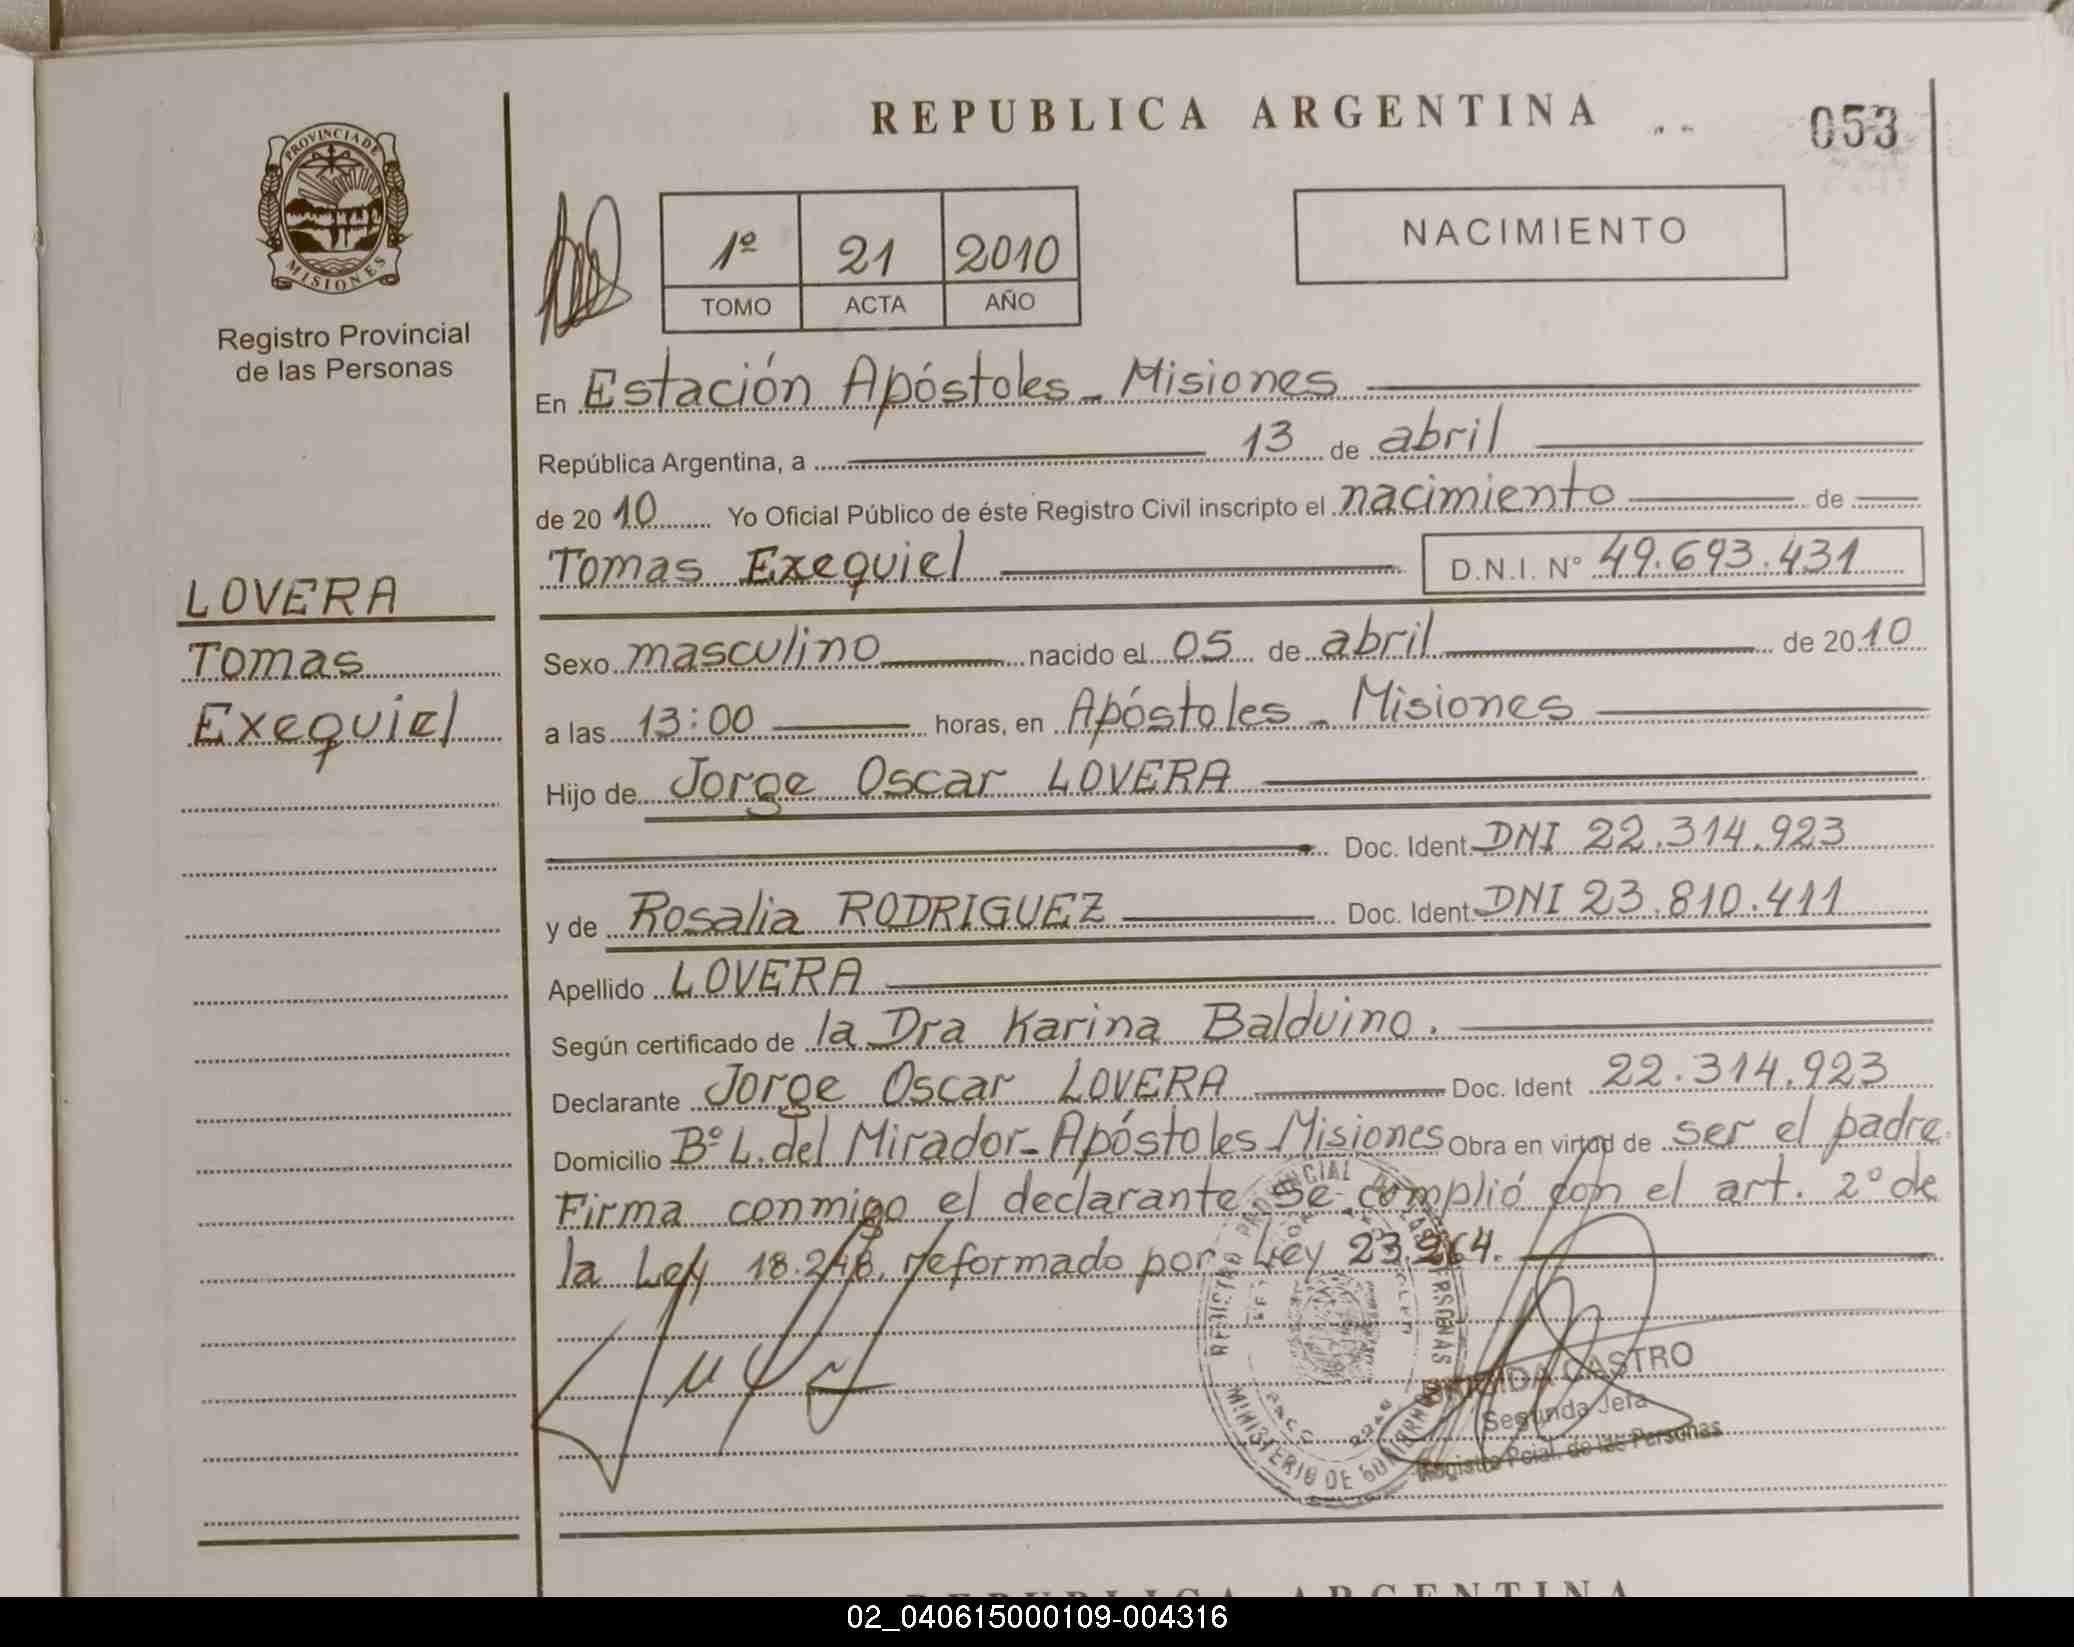 REPUBLICA ARGENTINA
053
PROVINCIA DE
MISIONES
Registro Provincial
de las Personas
1º 21 2010
TOMO ACTA AÑO
NACIMIENTO
En Estación Apóstoles - Misiones
República Argentina, a 13 de abril
de 2010 Yo Oficial Público de éste Registro Civil inscripto el nacimiento de
Tomas Exequiel D.N.I. Nº 49.693.431
LOVERA
Tomas
Exequiel
Sexo masculino nacido el 05 de abril de 2010
a las 13:00 horas, en Apóstoles - Misiones
Hijo de Jorge Oscar LOVERA
Doc. Ident. DNI 22.314.923
y de Rosalia RODRIGUEZ Doc. Ident. DNI 23.810.411
Apellido LOVERA
Según certificado de la Dra Karina Balduino.
Declarante Jorge Oscar LOVERA Doc. Ident 22.314.923
Domicilio Bº L. del Mirador - Apóstoles Misiones Obra en virtud de ser el padre.
Firma conmigo el declarante. Se cumplió con el art. 2º de
la Ley 18.248, reformado por Ley 23.264.
REGISTRO PROVINCIAL DE LAS PERSONAS
MINISTERIO DE GOBIERNO
CASTRO
Segunda Jefa
Registro Pcial. de las Personas
REPUBLICA ARGENTINA
02_040615000109-004316